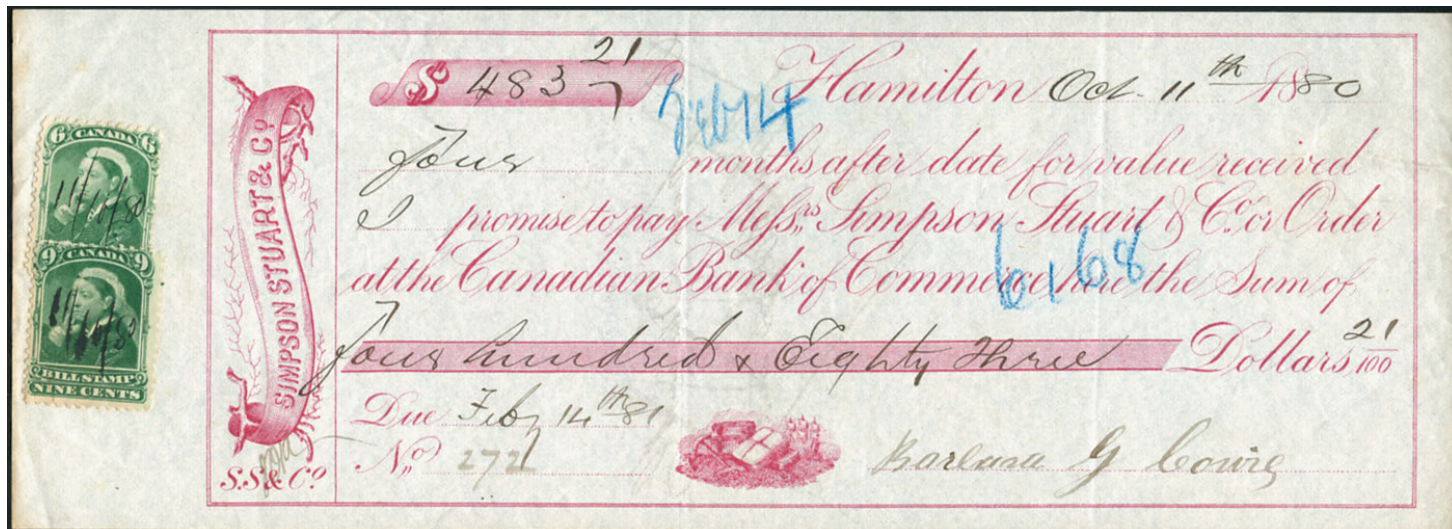 6 CANADA 6
11/10/80
9 CANADA 9
11/10/80
BILL STAMP
NINE CENTS
SIMPSON STUART & Co.
S.S & Co.
$ 483 21
Hamilton Oct. 11th 1880
Feb 14
Four months after date for value received
I promise to pay Messrs Simpson Stuart & Co. or Order
6168
at the Canadian Bank of Commerce here the Sum of
Four hundred & Eighty Three Dollars 21/100
Due Feby 14th 81
No. 272
Barbara G Cowie